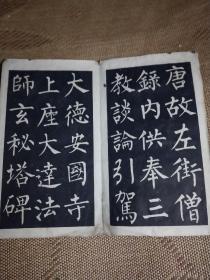 唐故左街僧
錄內供奉三
教談論引駕
大德安國寺
上座大達法
師玄秘塔碑